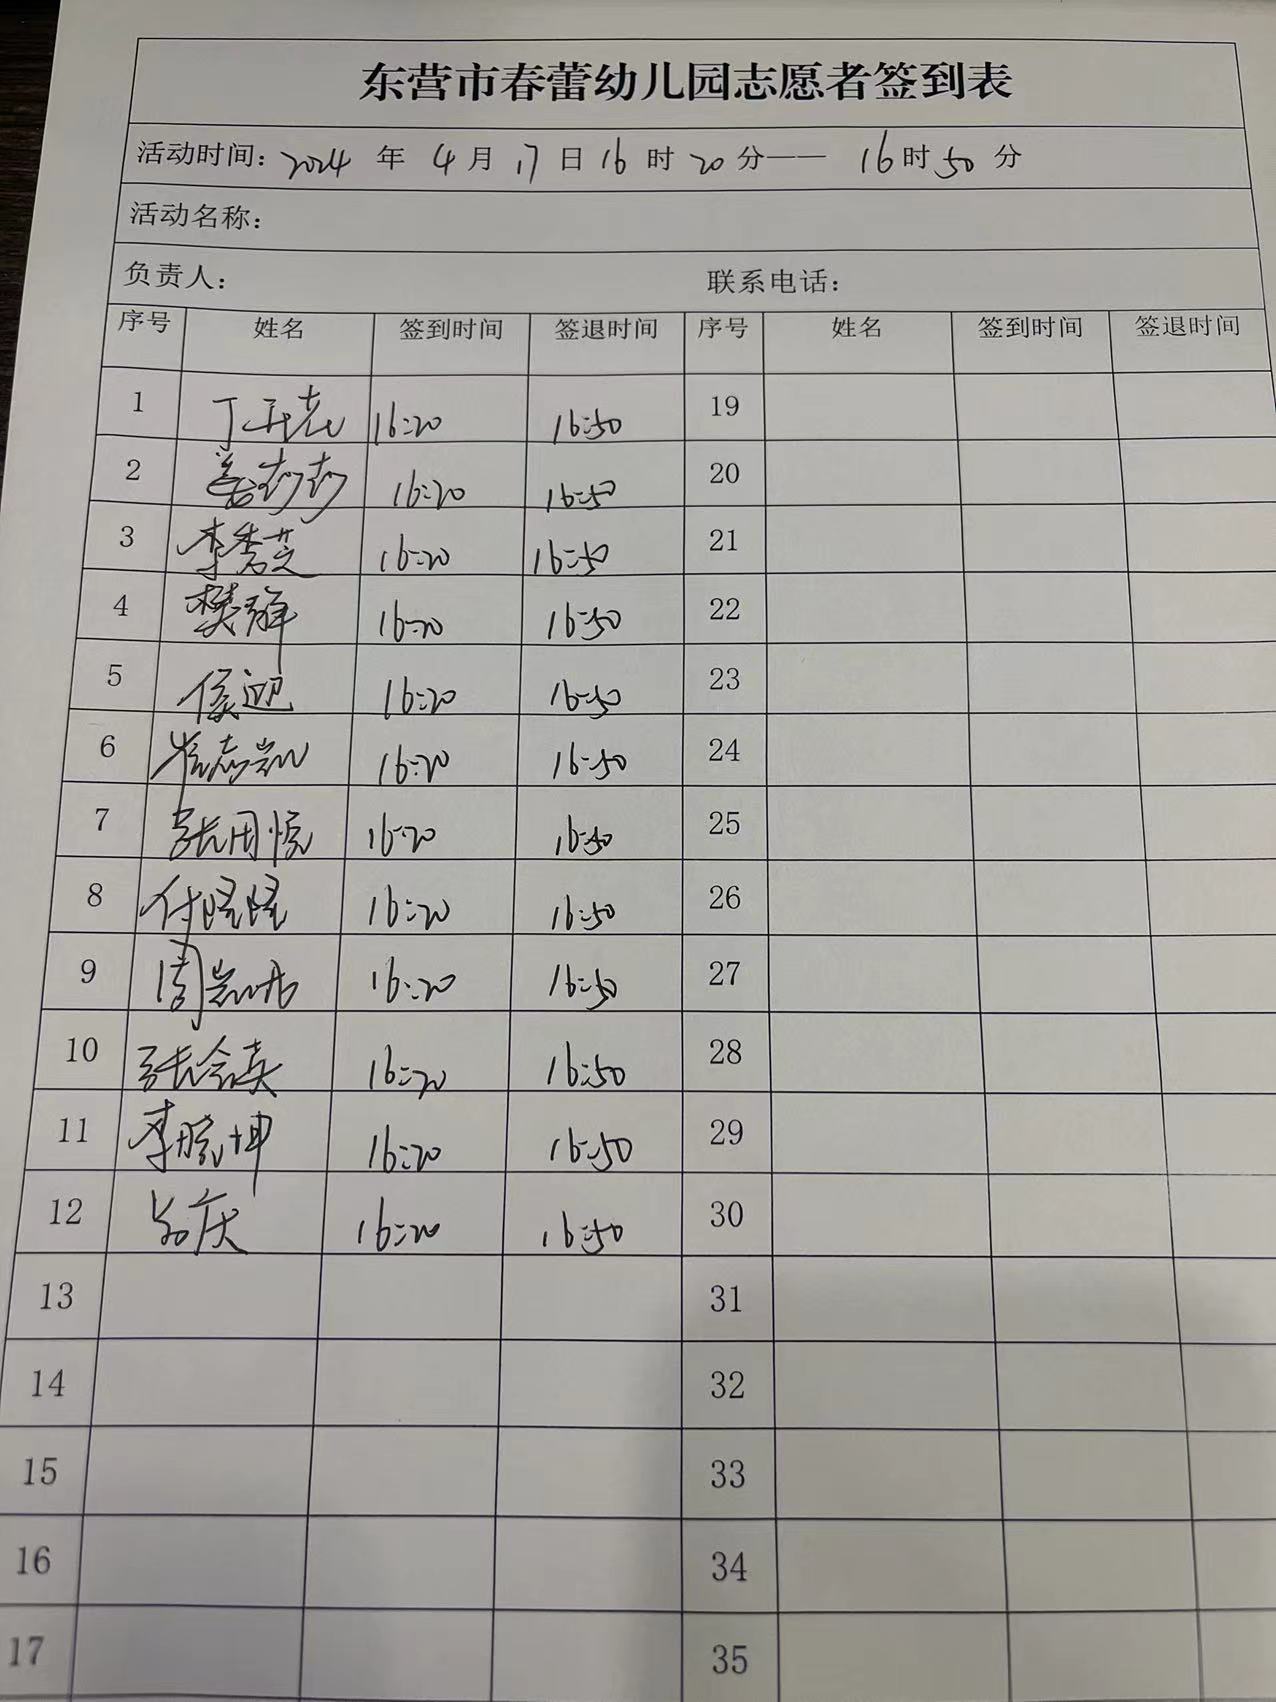 东营市春蕾幼儿园志愿者签到表
活动时间: 2024 年 4 月 17 日 16 时 20 分—— 16 时 50 分
活动名称:
负责人: 联系电话:
序号 姓名 签到时间 签退时间 序号 姓名 签到时间 签退时间
1 16:20 16:50 19
2 16:20 16:50 20
3 李秀芝 16:20 16:50 21
4 樊静 16:20 16:50 22
5 侯迎 16:20 16:50 23
6 崔志凯 16:20 16:50 24
7 16:20 16:50 25
8 付隆隆 16:20 16:50 26
9 16:20 16:50 27
10 张会英 16:20 16:50 28
11 李晓坤 16:20 16:50 29
12 16:20 16:50 30
13 31
14 32
15 33
16 34
17 35